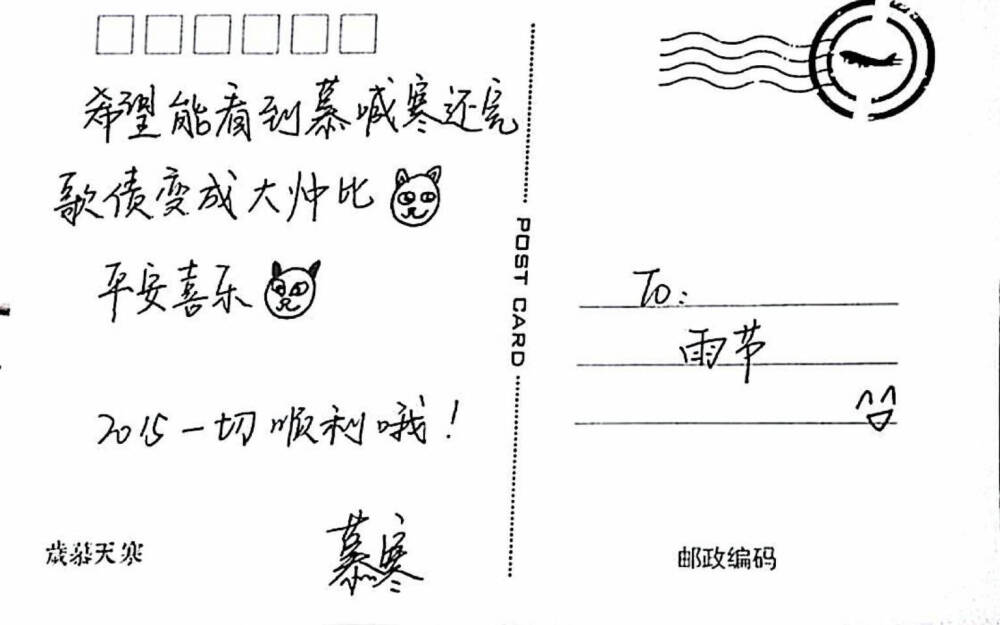 希望能看到慕喊寒还完
歌债变成大帅比
平安喜乐
2015一切顺利哦！
慕寒
歳慕天寒
POST CARD
To:
雨节
邮政编码